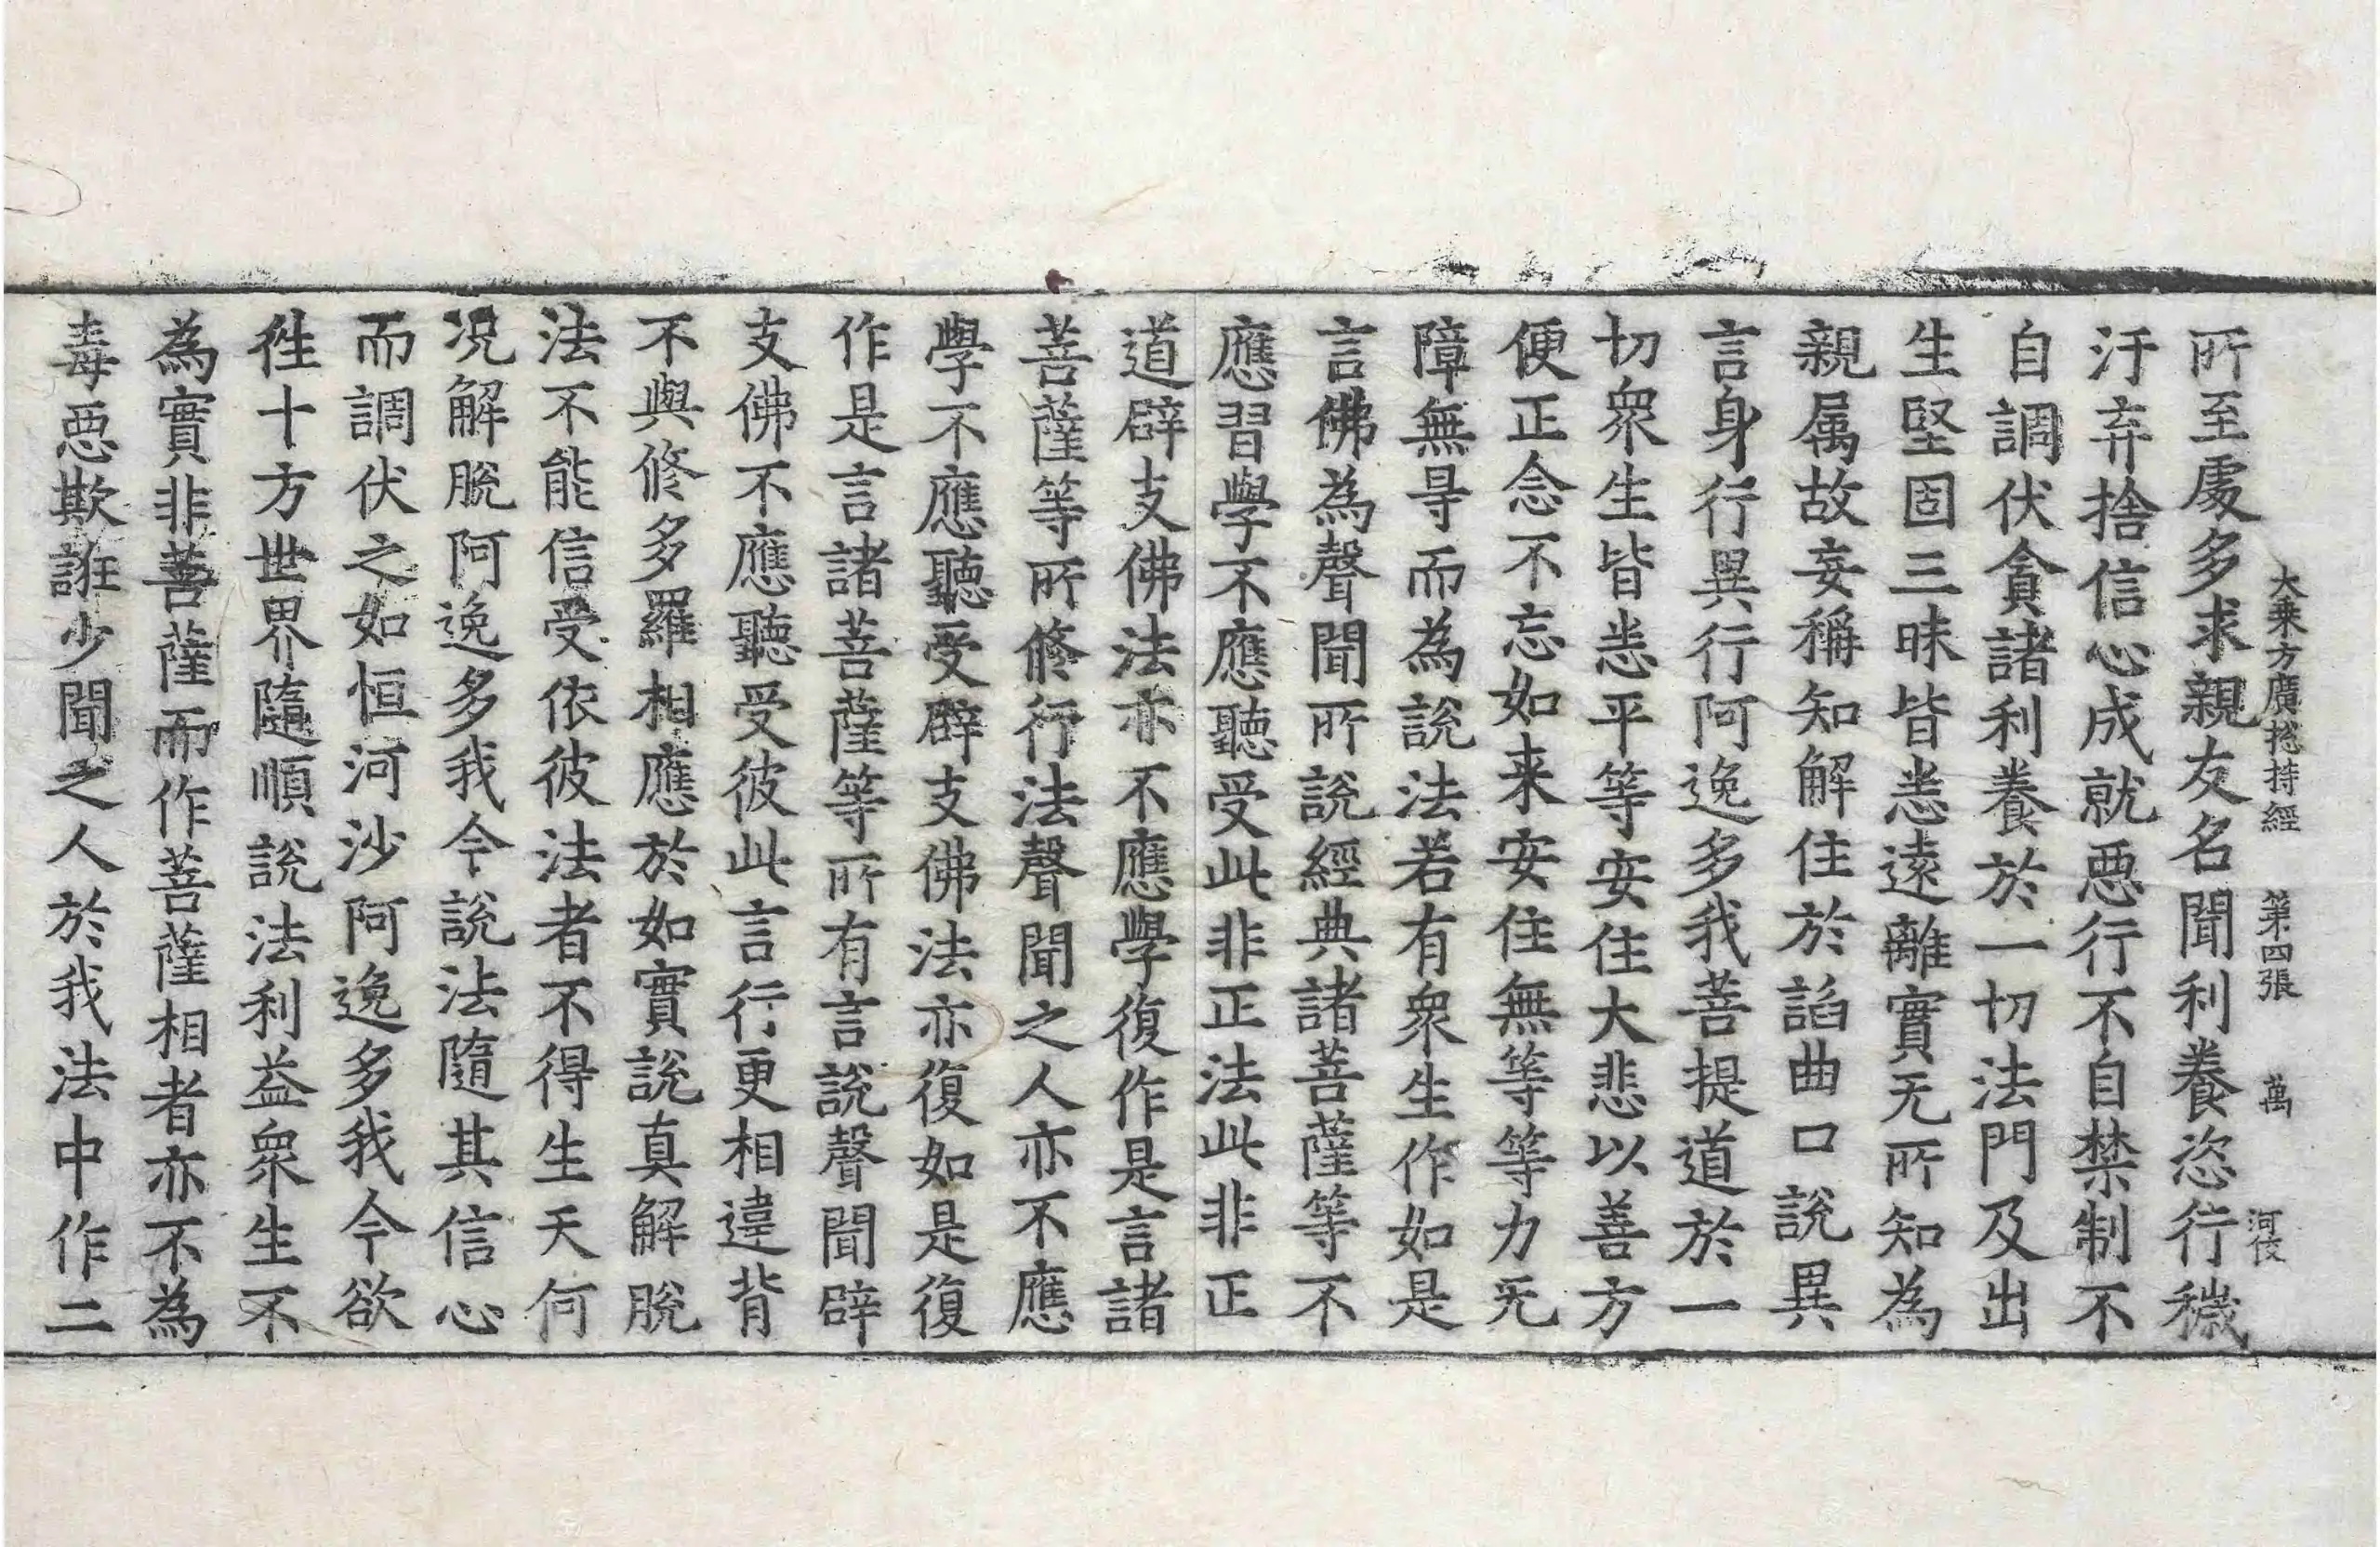 大乗方廣揔持經 第四張 萬 河伎
所至處多求親友名聞利養恣行穢
汙弃捨信心成就惡行不自禁制不
自調伏貪諸利養於一切法門及出
生堅固三昧皆悉遠離實无所知為
親属故妄稱知解住於諂曲口說異
言身行異行阿逸多我菩提道於一
切衆生皆悉平等安住大悲以善方
便正念不忘如来安住無等等力无
障無㝵而為說法若有衆生作如是
言佛為聲聞所說經典諸菩薩等不
應習學不應聽受此非正法此非正
道辟支佛法亦不應學復作是言諸
菩薩等所修行法聲聞之人亦不應
學不應聽受辟支佛法亦復如是復
作是言諸菩薩等所有言說聲聞辟
支佛不應聽受彼此言行更相違背
不與修多羅相應於如實說真解脫
法不能信受依彼法者不得生天何
况解脫阿逸多我今說法隨其信心
而調伏之如恒河沙阿逸多我今欲
徃十方世界隨順說法利益衆生不
為實非菩薩而作菩薩相者亦不為
毒惡欺誑少聞之人於我法中作二